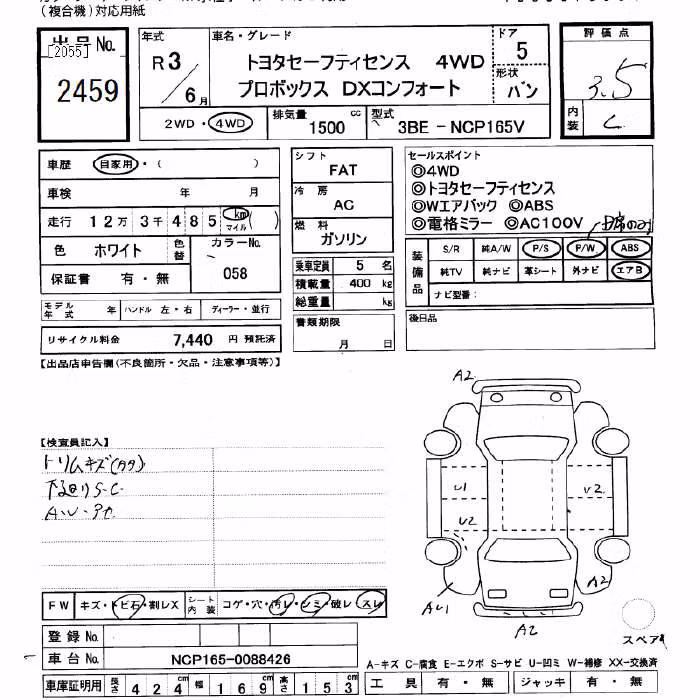 (複合機)対応用紙
出品No.
[2055]
2459
年式
R3/6月
車名・グレード
トヨタセーフティセンス 4WD
プロボックス DXコンフォート
ドア
5
形状
バン
2WD・4WD
排気量 1500 cc
型式 3BE-NCP165V
評価点
3.5
内装 C
車歴 自家用・( )
車検 年 月
走行 12万3千485 km( ) マイル
色 ホワイト 色替
カラーNo. 058
保証書 有・無
モデル年式 年 ハンドル 左・右 ディーラー・並行
リサイクル料金 7,440 円 預託済
シフト FAT
冷房 AC
燃料 ガソリン
乗車定員 5 名
積載量 400 kg
総重量 kg
書類期限
月 日
セールスポイント
◎4WD
◎トヨタセーフティセンス
◎Wエアバック ◎ABS
◎電格ミラー ◎AC100V
装備品
S/R 純A/W P/S P/W ABS
純TV 純ナビ 革シート 外ナビ エアB
ナビ型番:
後日品
【出品店申告欄(不良箇所・欠品・注意事項等)】
【検査員記入】
トリムキズ(タタ)
下廻りS.C.
FW キズ・トビ石・割レX
シート内装 コゲ・穴・汚レ・シミ・破レ スレ
登録No.
車台No. NCP165-0088426
車庫証明用 長さ 424cm 幅 169cm 高さ 153cm
A2
U1
U2
U2
A2
AU1
A2
スペア
A-キズ C-腐食 E-エクボ S-サビ U-凹ミ W-補修 XX-交換済
工具 有・無 ジャッキ 有・無